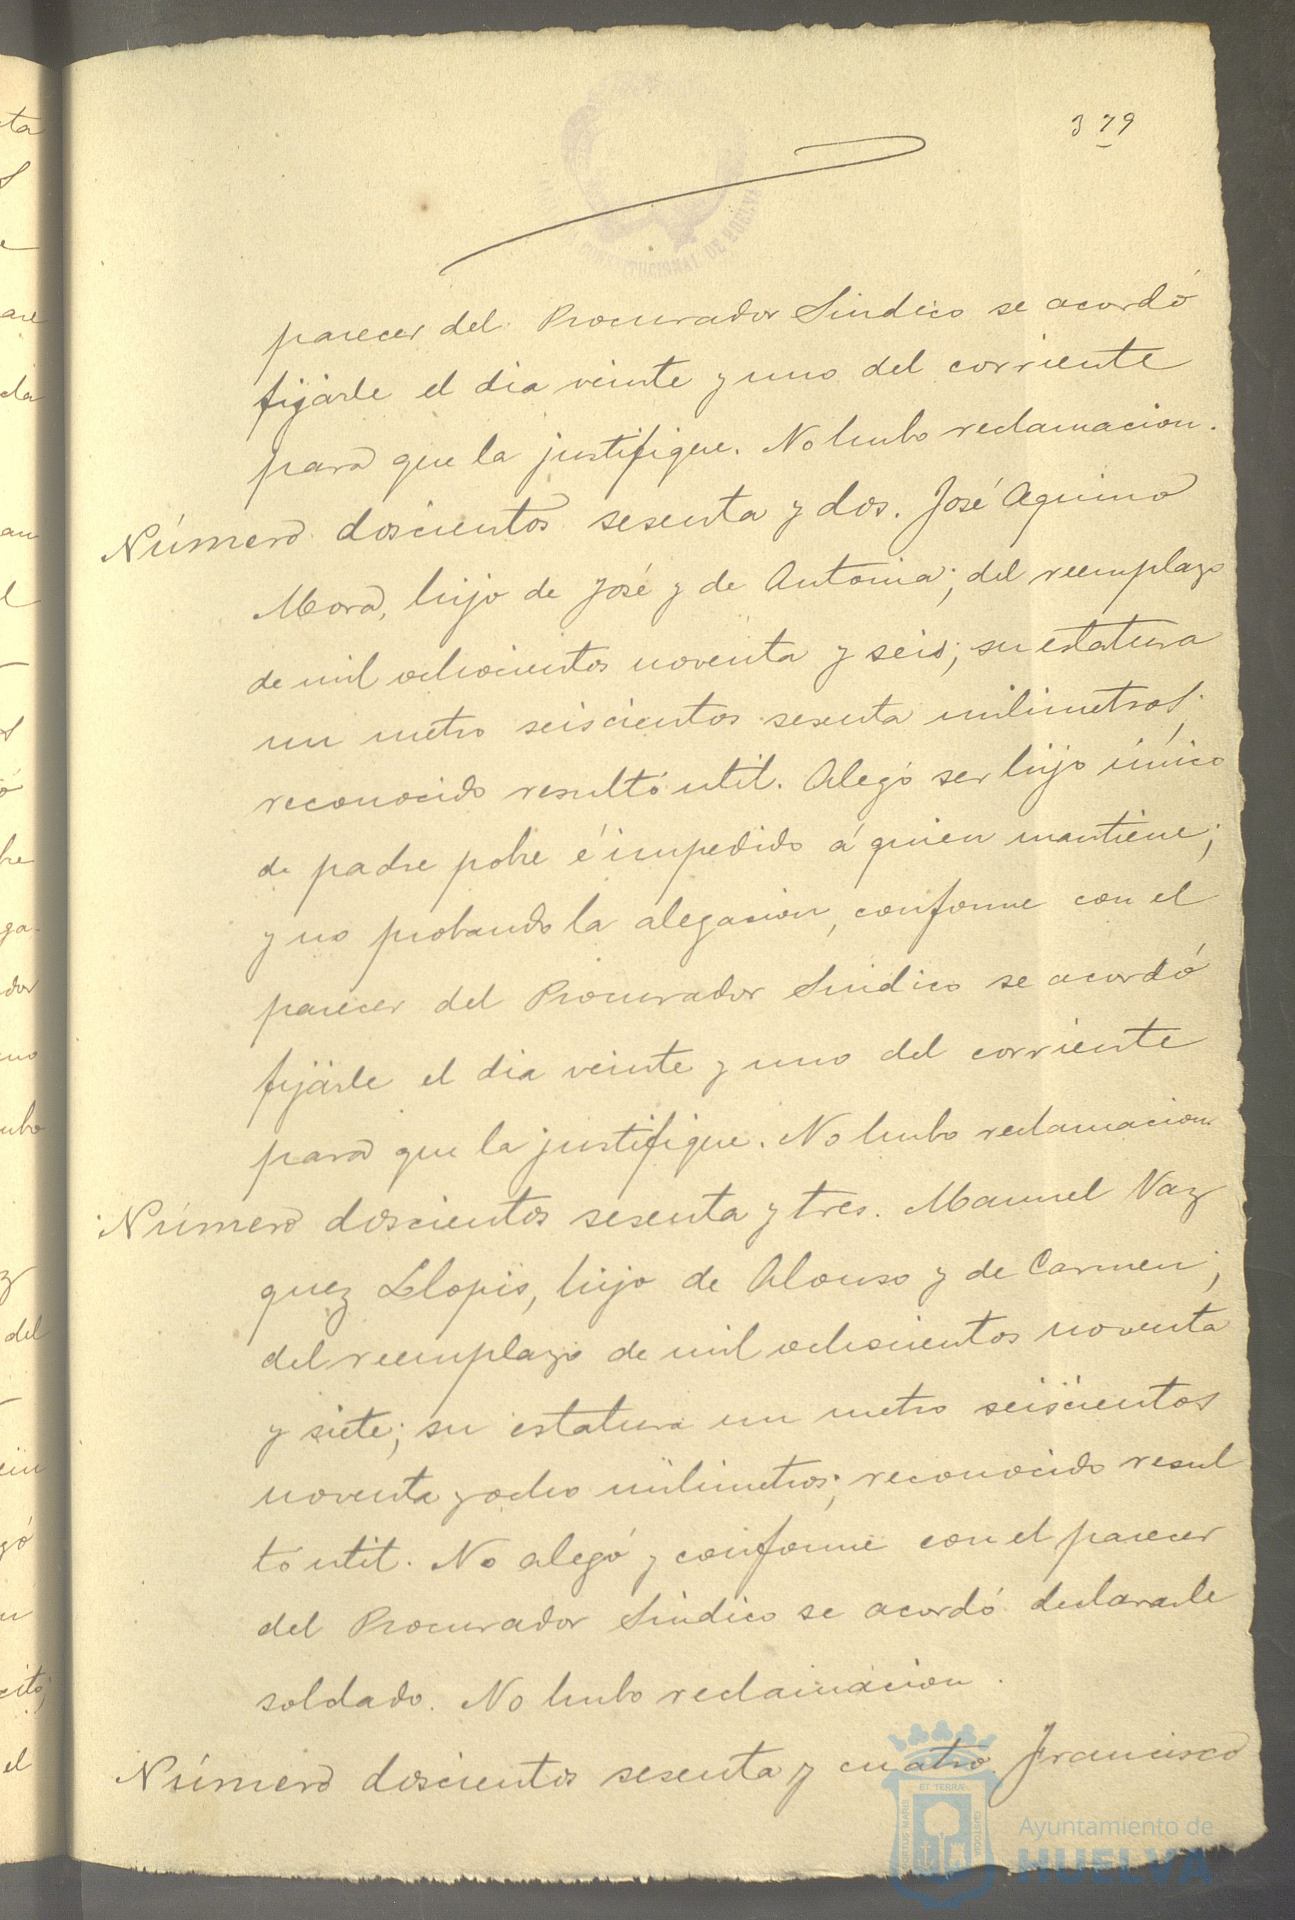 379
parecer del Procurador Sindico se acordó
fijárle el dia veinte y uno del corriente
para que la justifique. No hubo reclamacion.
Número doscientos sesenta y dos. José Aquino
Mora, hijo de José y de Antonia; del reemplazo
de mil ochocientos noventa y seis; su estatura
un metro seiscientos sesenta milimetros;
reconocido resultó util. Alegó ser hijo único
de padre pobre é impedido á quien mantiene;
y no probando la alegacion, conforme con el
parecer del Procurador Sindico se acordó
fijárle el dia veinte y uno del corriente
para que la justifique. No hubo reclamacion.
Número doscientos sesenta y tres. Manuel Vaz
quez Llopis, hijo de Alonso y de Carmen;
del reemplazo de mil ochocientos noventa
y siete; su estatura un metro seiscientos
noventa y ocho milimetros; reconocido resul
tó util. No alegó y conforme con el parecer
del Procurador Sindico se acordó declararle
soldado. No hubo reclamacion.
Número doscientos sesenta y cuatro. Francisco
Ayuntamiento de
HUELVA